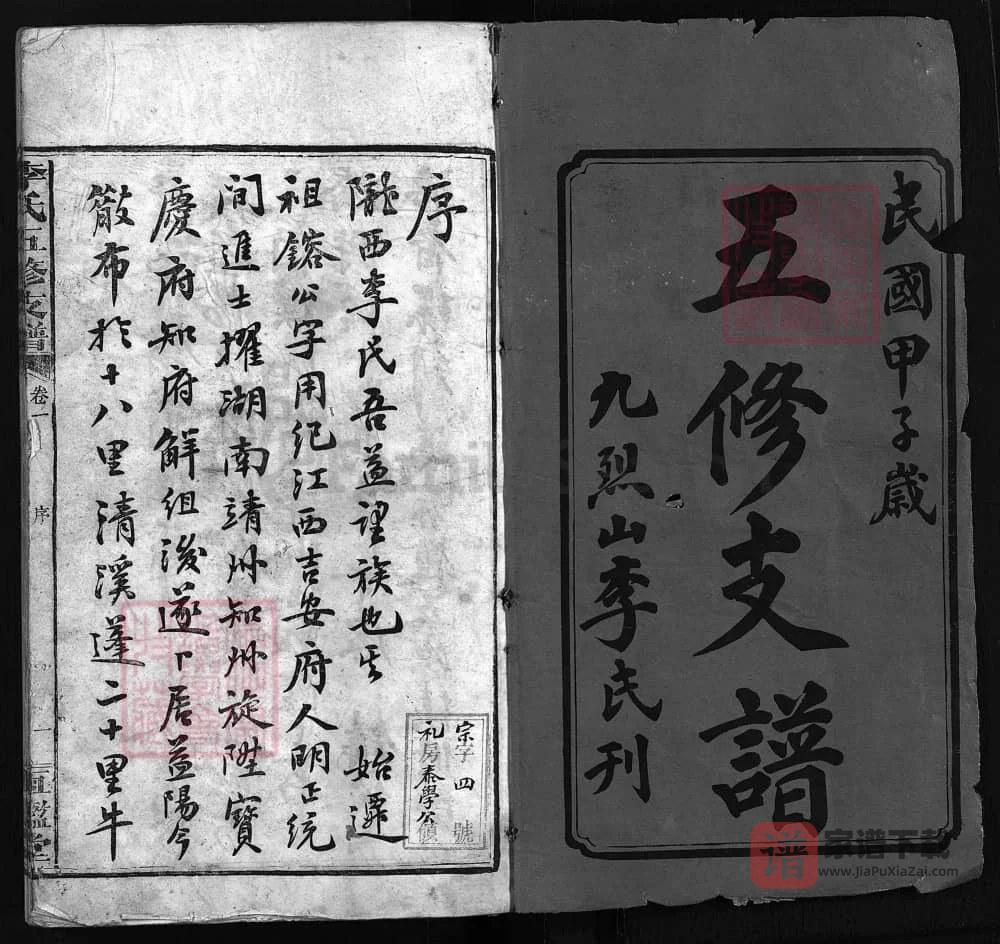 民國甲子歲
五修支譜
九烈山李氏刊
序
隴西李氏吾益望族也其 始遷
祖鎔公字用纪江西吉安府人明正統
间進士擢湖南靖州知州旋陞寶
慶府知府解组後遂卜居益陽今
散布於十八里清溪蓬二十里牛
宗字四號
礼房泰學公領
李氏五修支譜
卷一
序
一
家谱下载
www.JiaPuXiaZai.com
谱